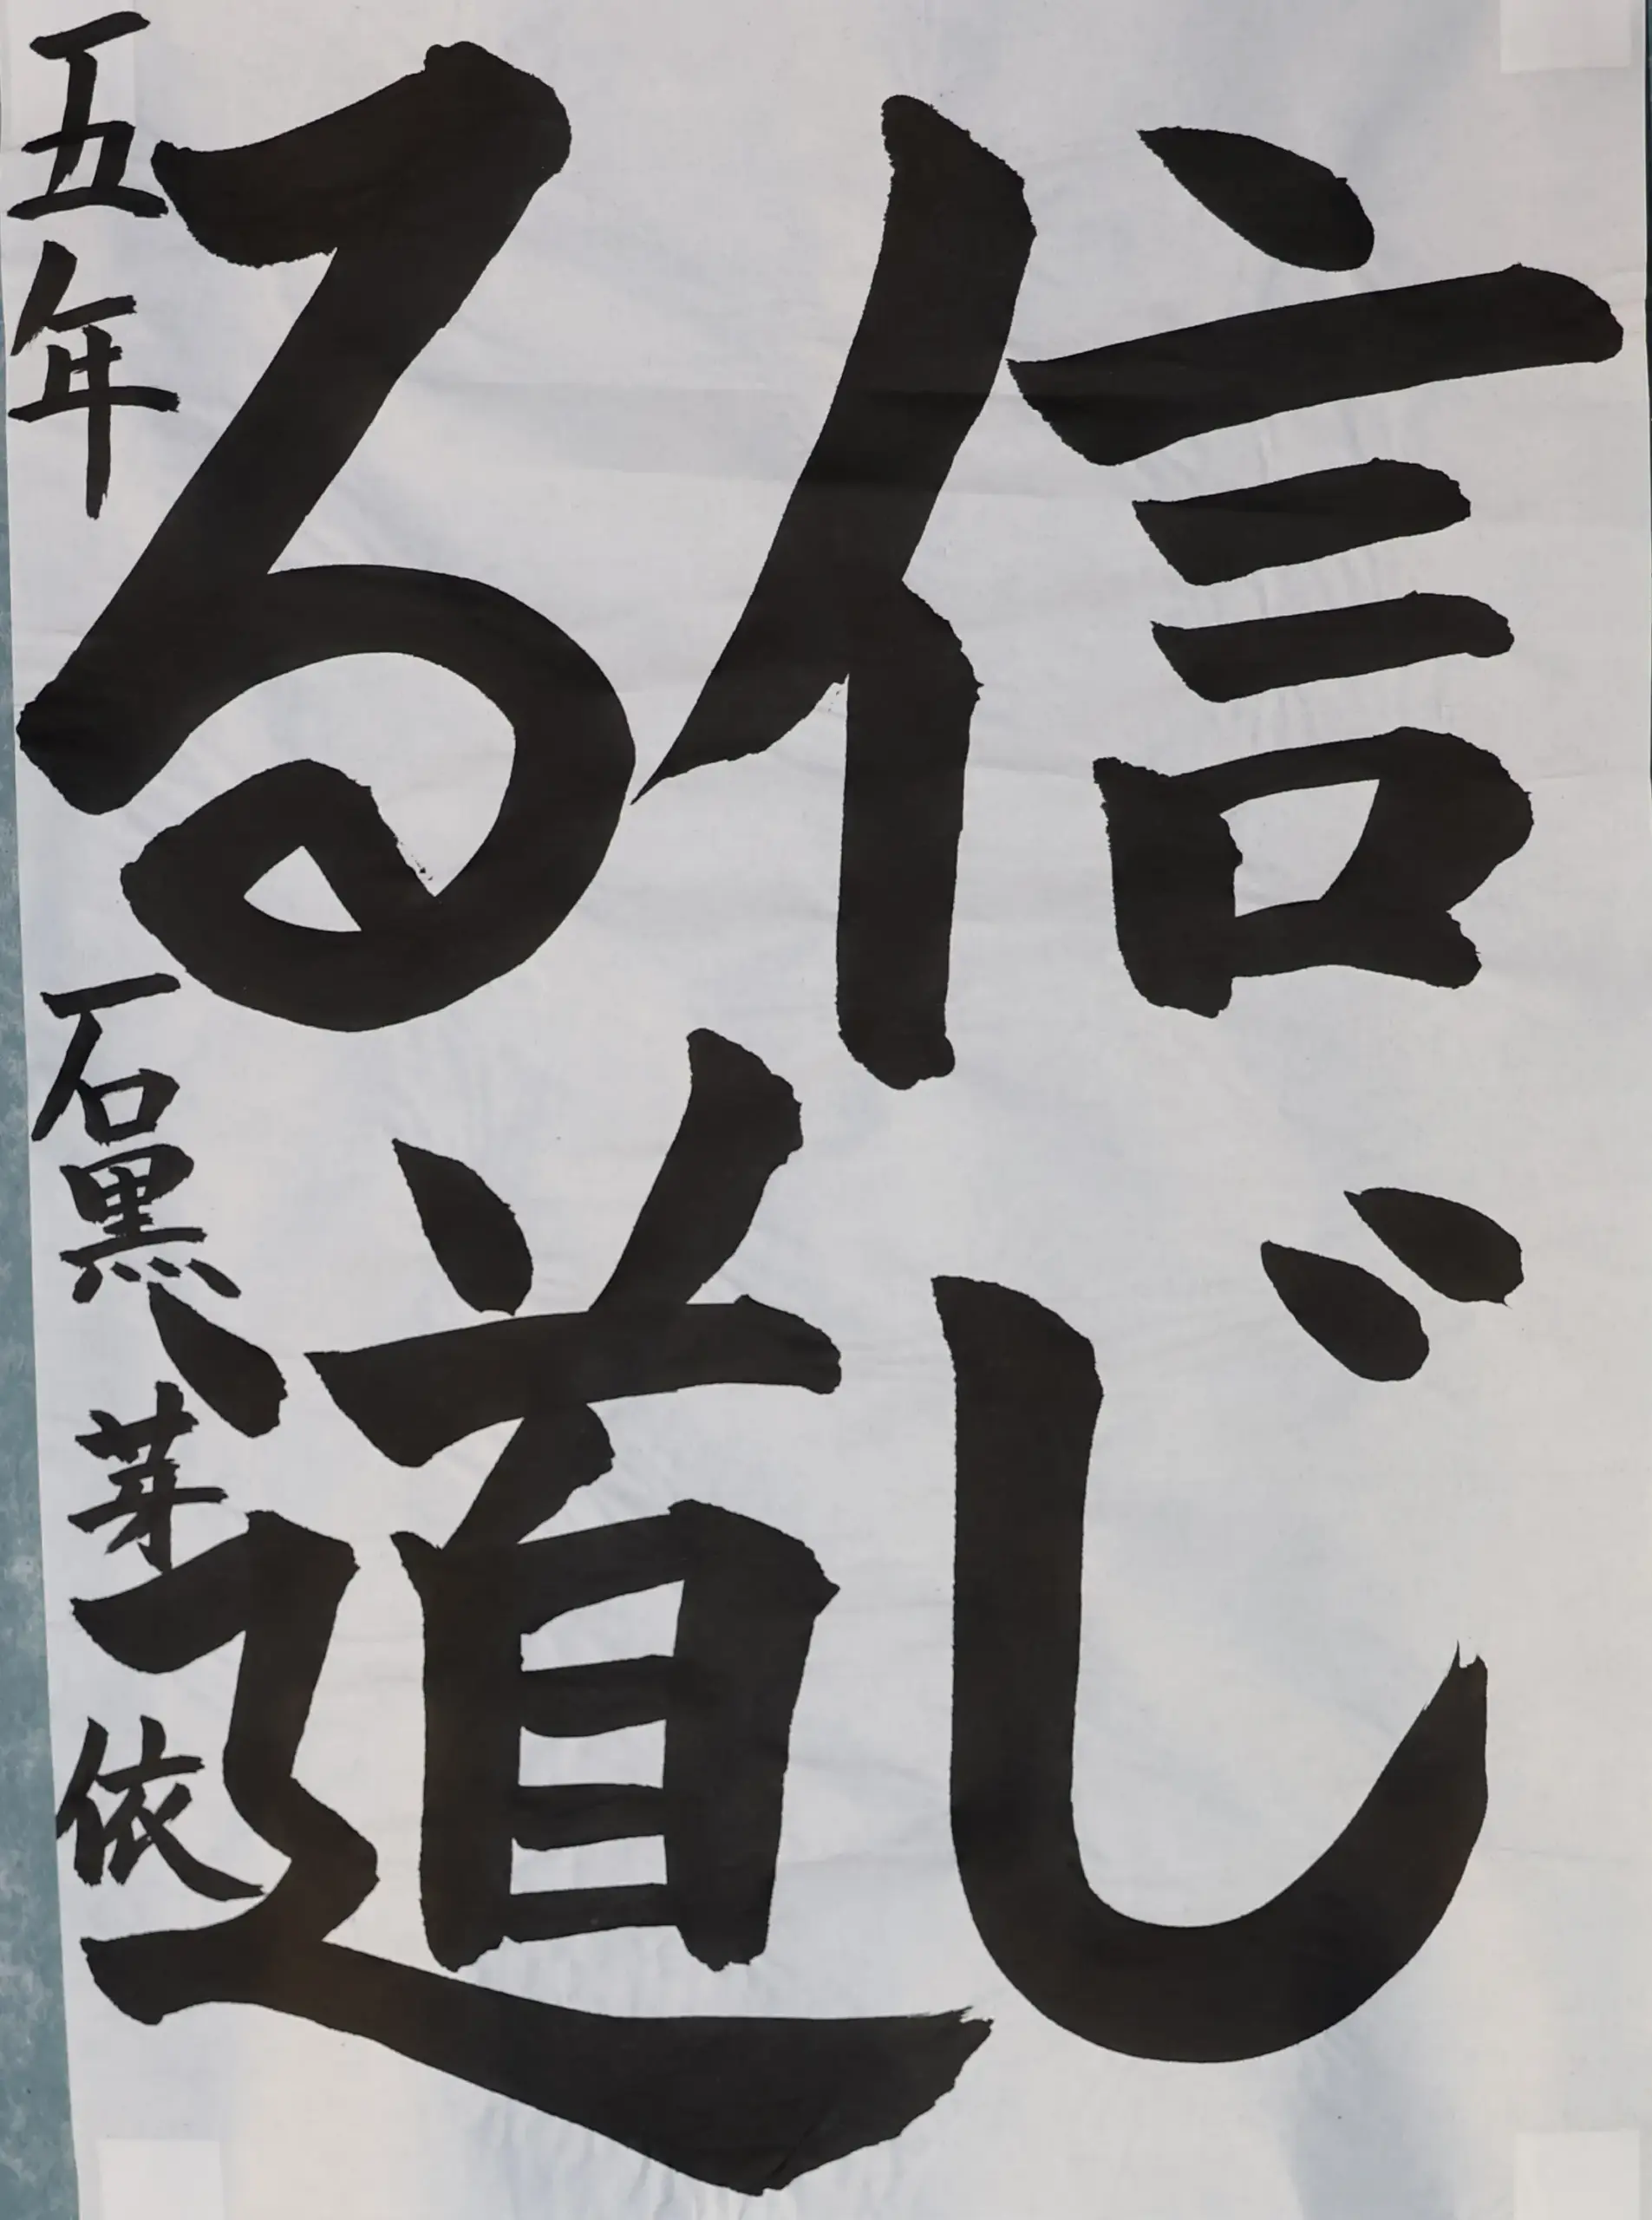 信じ
る道
五年 石黒 芽依